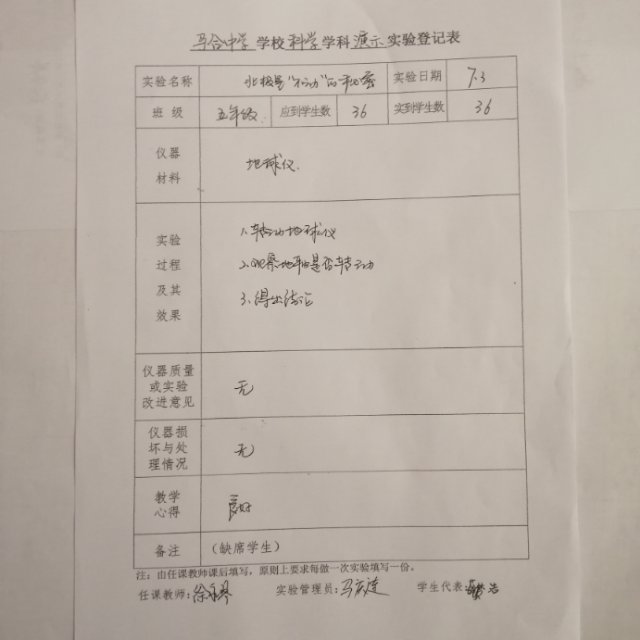 马合中学学校科学学科演示实验登记表
实验名称 北极星"不动"的秘密 实验日期 7.3
班级 五年级 应到学生数 36 实到学生数 36
仪器
材料
地球仪.
实验
过程
及其
效果
1.转动地球仪
2.观察地轴是否转动
3.得出结论
仪器质量
或实验
改进意见
无
仪器损
坏与处
理情况
无
教学
心得
良好
备注 (缺席学生)
注:由任课教师课后填写,原则上要求每做一次实验填写一份。
任课教师: 实验管理员: 学生代表: